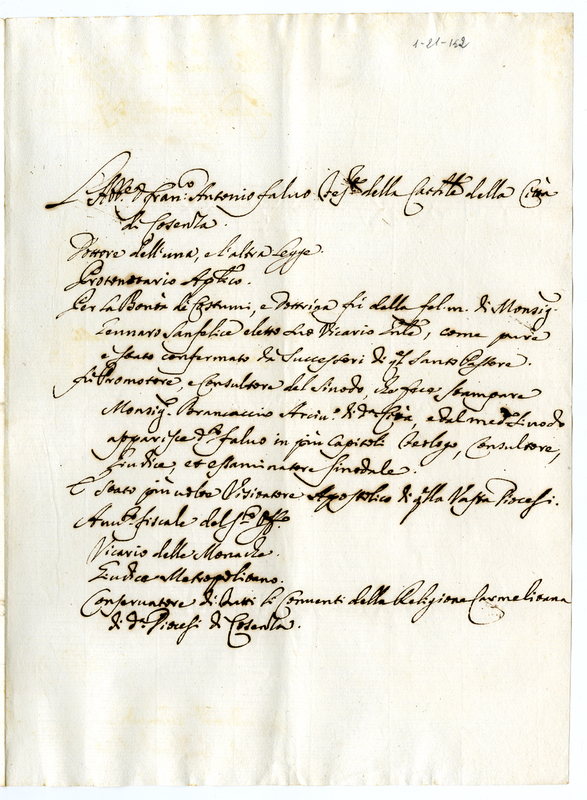 1-21-152
L'Abb.e D. Fran.co Antonio Falvo della Cattd.le della Città
di Cosenza.
Dottore dell'una, e l'altra Legge.
Protonotario Ap.lico.
Per la Bontà de Costumi, e Dottrina fù dalla fel. m. di Monsig.r
Gennaro Sanfelice eletto suo Vicario Gn.le, come pure
è stato confermato da Successori di q.l Santo Pastore.
Fù Promotore, e Consultore del Sinodo, che fece stampare
Monsig.r Brancaccio Arciv.o di d.a Città, e dal med.o Sinodo
apparisce d.o Falvo in più Capitoli Teologo, Consultore,
Giudice, et essaminatore Sinodale.
È stato più volte Visitatore Apostolico di q.lla Vasta Diocesi.
Avv.o fiscale del S.to Off.o
Vicario delle Monache.
Giudice Metropolitano.
Conservatore di tutti li Conventi della Religione Carmelitana
di d.a Diocesi di Cosenza.